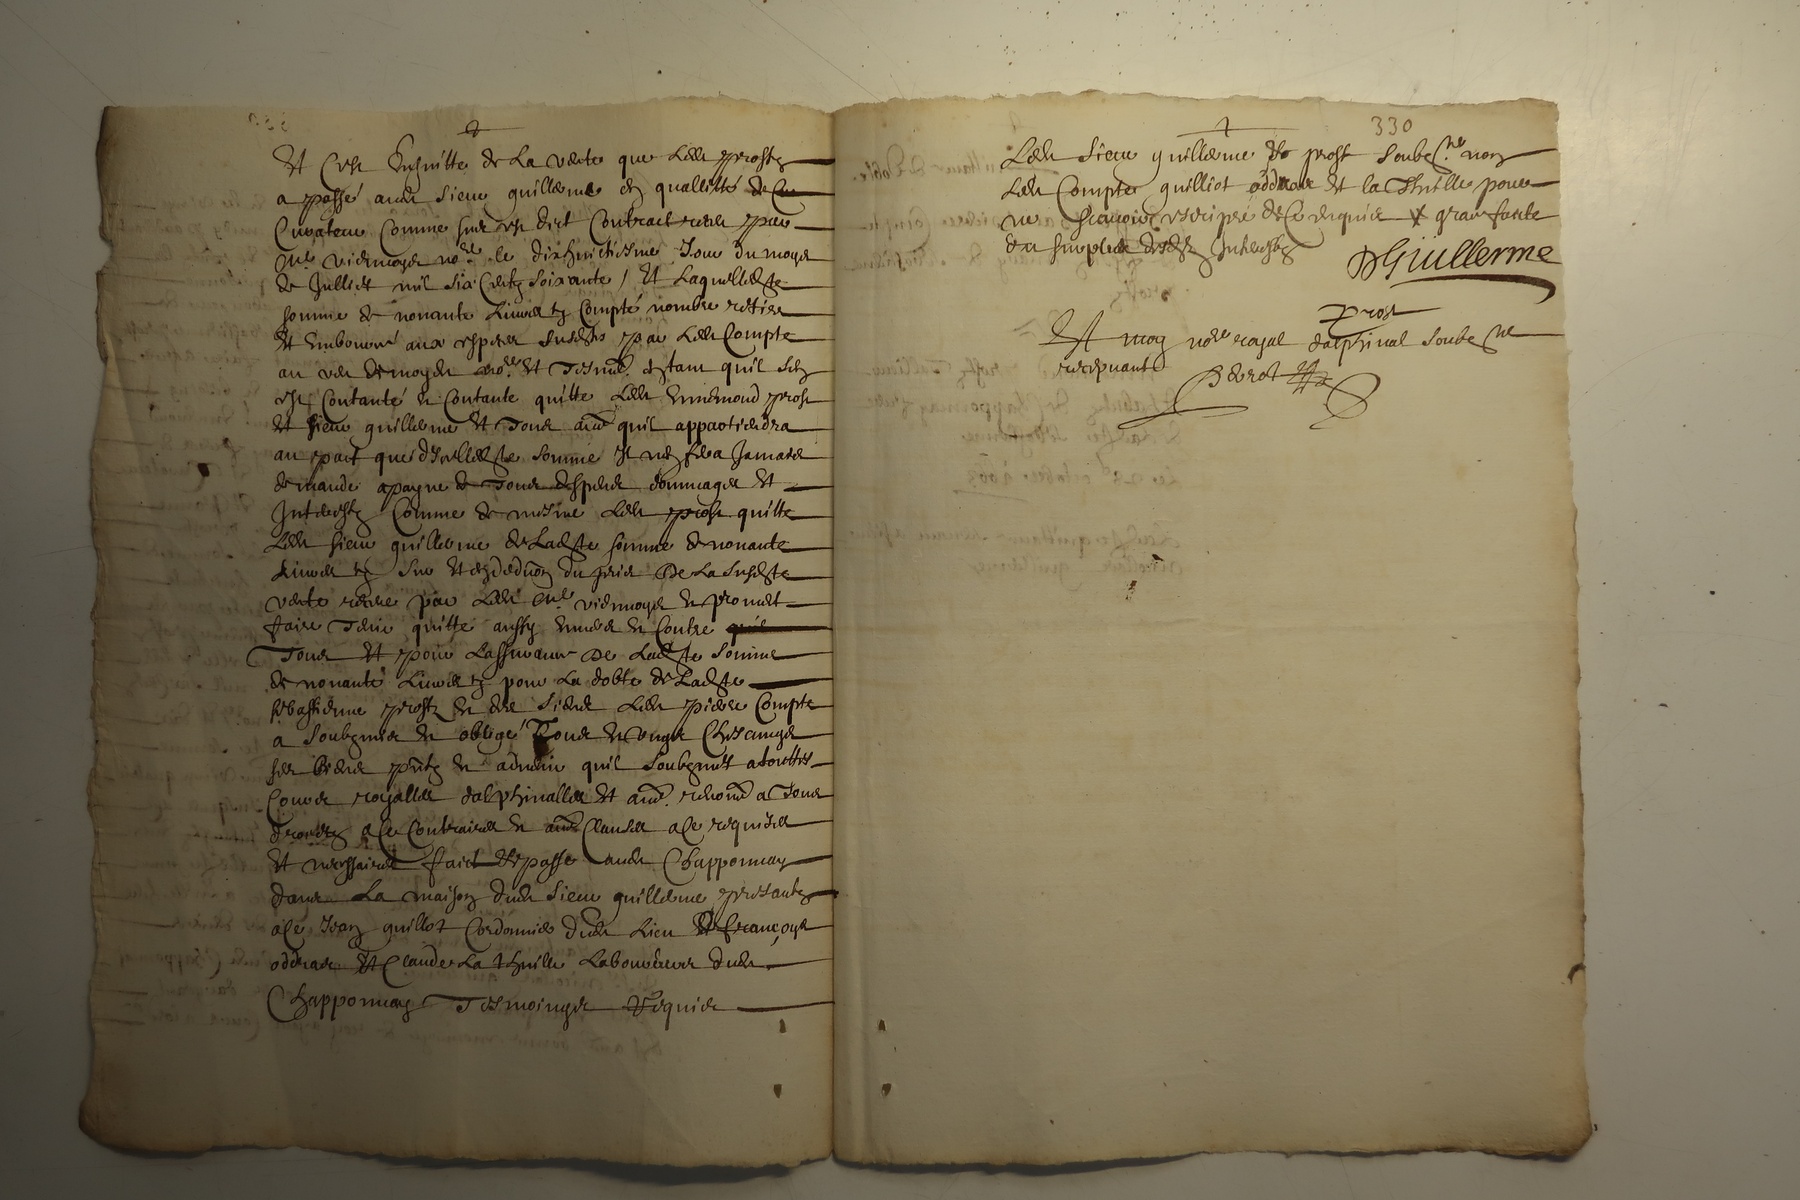 Et c'est ensuitte de la vente que led prost
a passé aud sieur guillerme en quallitté de Cu
Curateur comme sur est dict Contract receu par
me viemoyer no.re le dixhuictiesme Jour du moys
de Juillet mil six Centz soixante / Et laquelle ditte
somme de nonante Livres tz Compté nombre retiré
Et Emboursé aux especes susdes par led Compte
au veu de moyd no.re Et Tesm. en tant qu'il s'en
est Contanté et Contante quitte led Ennemond prost
Et sieur guillerme Et Tous aues qu'il appartiendra
au pact que d'Icelle ditte somme Il n'en sera Jamais
demandé a payne de Tous despens dommages Et
Interestz Comme de mesme led prost quitte
Led sieur guillerme de Ladte somme de nonante
Livres tz sur Et en deduon du prix De La Susdte
vente receue par led me viemoyer et promet
faire Tenir quitte aussy Envers et Contre
Tous Et pour Lassurance De Ladte Somme
de nonante Livres tz pour La dobte de Ladte
sebastienne prost et des siens Led pierre Compte
a Soubzmis et obligé Tous et ungs Chescungs
ses biens pntz et advenir qu'il Soubzmet a touttes
Cours royalles dalphinalles Et aues renoncé a Tous
droictz a Ce Contraires et aues Clauses a Ce requises
Et necessaires faict Et passé aud Chapponnay
dans La maison dud sieur guillerme presantz
a Ce Jean guillot Cordonnier dud Lieu Et françoys
oddras Et Claude La thuille Laboureurs dud
Chapponnay Tesmoings requis
330
Led Sieur guillerme Et prost Soubz.ne non
Led Compte guilliot oddras Et la Thuille pour
ne scavoir escripre de Ce enquis
guillerme
prost
Et moy no.re royal dalphinal Soubz.ne
recepvant